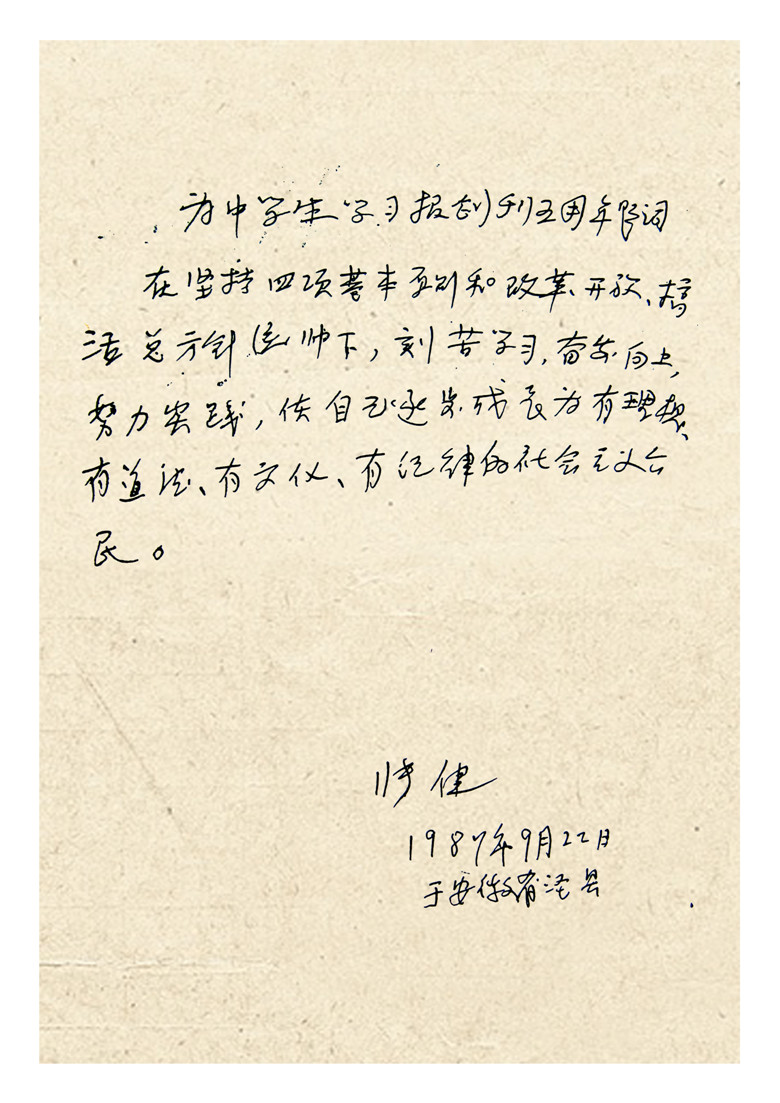 为中学生学习报创刊五周年题词
在坚持四项基本原则和改革、开放、搞
活总方针统帅下，刻苦学习，奋发向上，
努力实践，使自己逐步成长为有理想、
有道德、有文化、有纪律的社会主义公
民。
健
1987年9月22日
于安徽省泾县